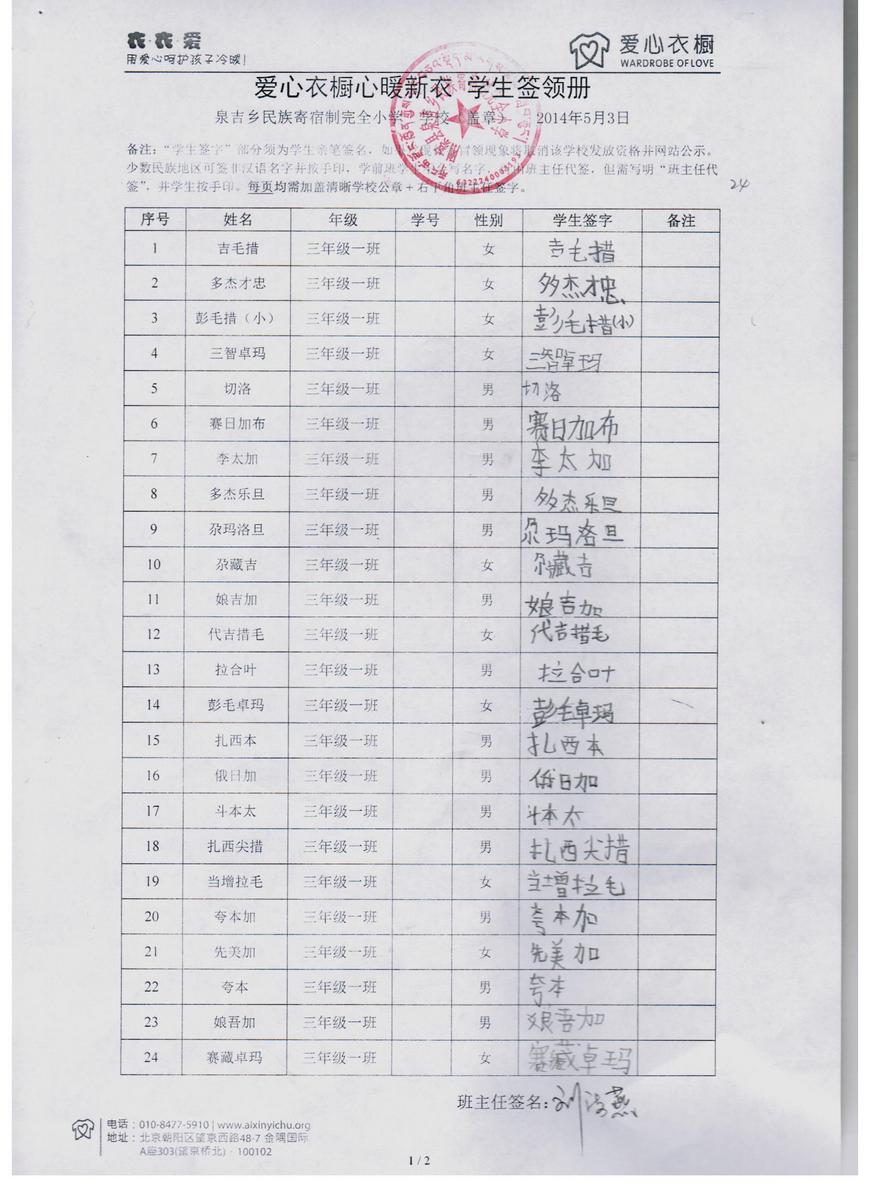 衣·衣·爱
用爱心呵护孩子冷暖!
爱心衣橱
WARDROBE OF LOVE
爱心衣橱心暖新衣 学生签领册
泉吉乡民族寄宿制完全小学 学校(盖章) 2014年5月3日
备注:“学生签字”部分须为学生亲笔签名,如 冒领现象将取消该学校发放资格并网站公示。
少数民族地区可签非汉语名字并按手印,学前班学 写名字, 由班主任代签,但需写明“班主任代
签”,并学生按手印。每页均需加盖清晰学校公章+右下角班主任签字。
24
序号 姓名 年级 学号 性别 学生签字 备注
1 吉毛措 三年级一班 女 吉毛措
2 多杰才忠 三年级一班 女 多杰才忠
3 彭毛措(小) 三年级一班 女 彭毛措(小)
4 三智卓玛 三年级一班 女 三智卓玛
5 切洛 三年级一班 男 切洛
6 赛日加布 三年级一班 男 赛日加布
7 李太加 三年级一班 男 李太加
8 多杰乐旦 三年级一班 男 多杰乐旦
9 尕玛洛旦 三年级一班 男 尕玛洛旦
10 尕藏吉 三年级一班 女 尕藏吉
11 娘吉加 三年级一班 男 娘吉加
12 代吉措毛 三年级一班 女 代吉措毛
13 拉合叶 三年级一班 男 拉合叶
14 彭毛卓玛 三年级一班 女 彭毛卓玛
15 扎西本 三年级一班 男 扎西本
16 俄日加 三年级一班 男 俄日加
17 斗本太 三年级一班 男 斗本太
18 扎西尖措 三年级一班 男 扎西尖措
19 当增拉毛 三年级一班 女 当增拉毛
20 夸本加 三年级一班 男 夸本加
21 先美加 三年级一班 女 先美加
22 夸本 三年级一班 男 夸本
23 娘吾加 三年级一班 男 娘吾加
24 赛藏卓玛 三年级一班 女 赛藏卓玛
班主任签名:
电话:010-8477-5910 | www.aixinyichu.org
地址:北京朝阳区望京西路48-7 金隅国际
A座303(望京桥北)·100102
1 / 2